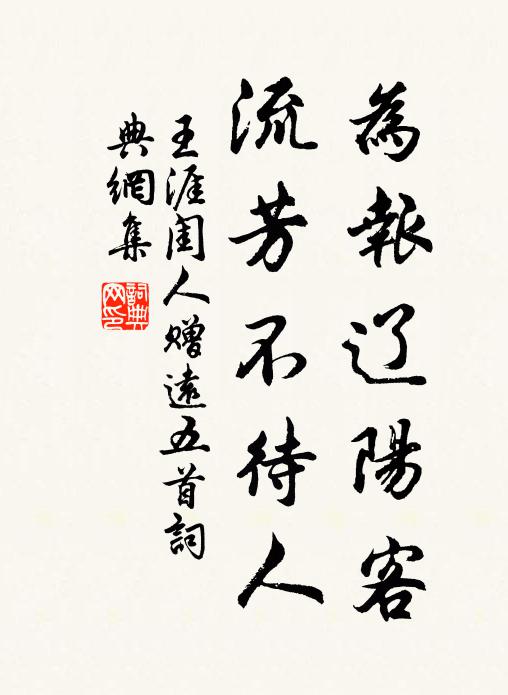 為報辽陽客
流芳不待人
王涯閨人赠遠五首詞
典網集
詞典
网印